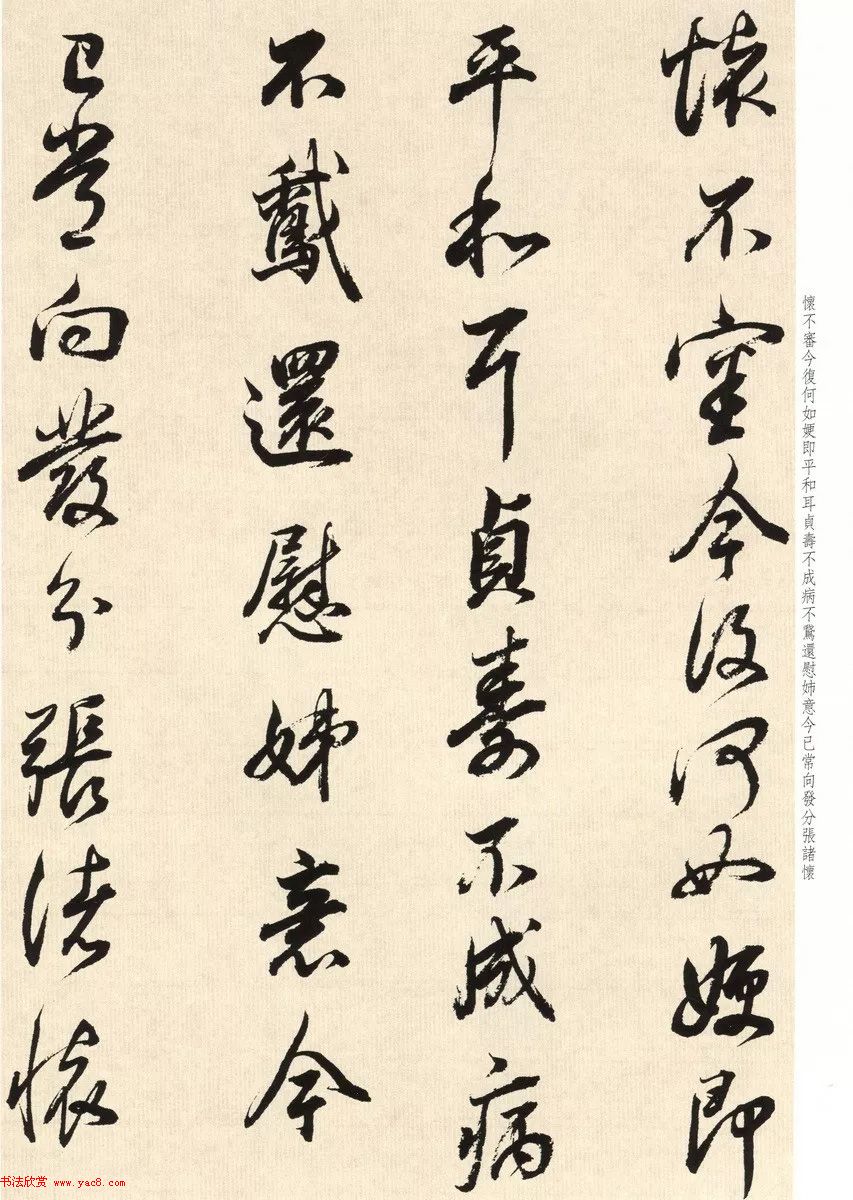 懷不審今復何如㛐即
平和耳貞壽不成病
不驁還慰姊意今
已常向發分張諸懷
懷不審今復何如㛐即平和耳貞壽不成病不驁還慰姊意今已常向發分張諸懷
书法欣赏 www.yac8.com